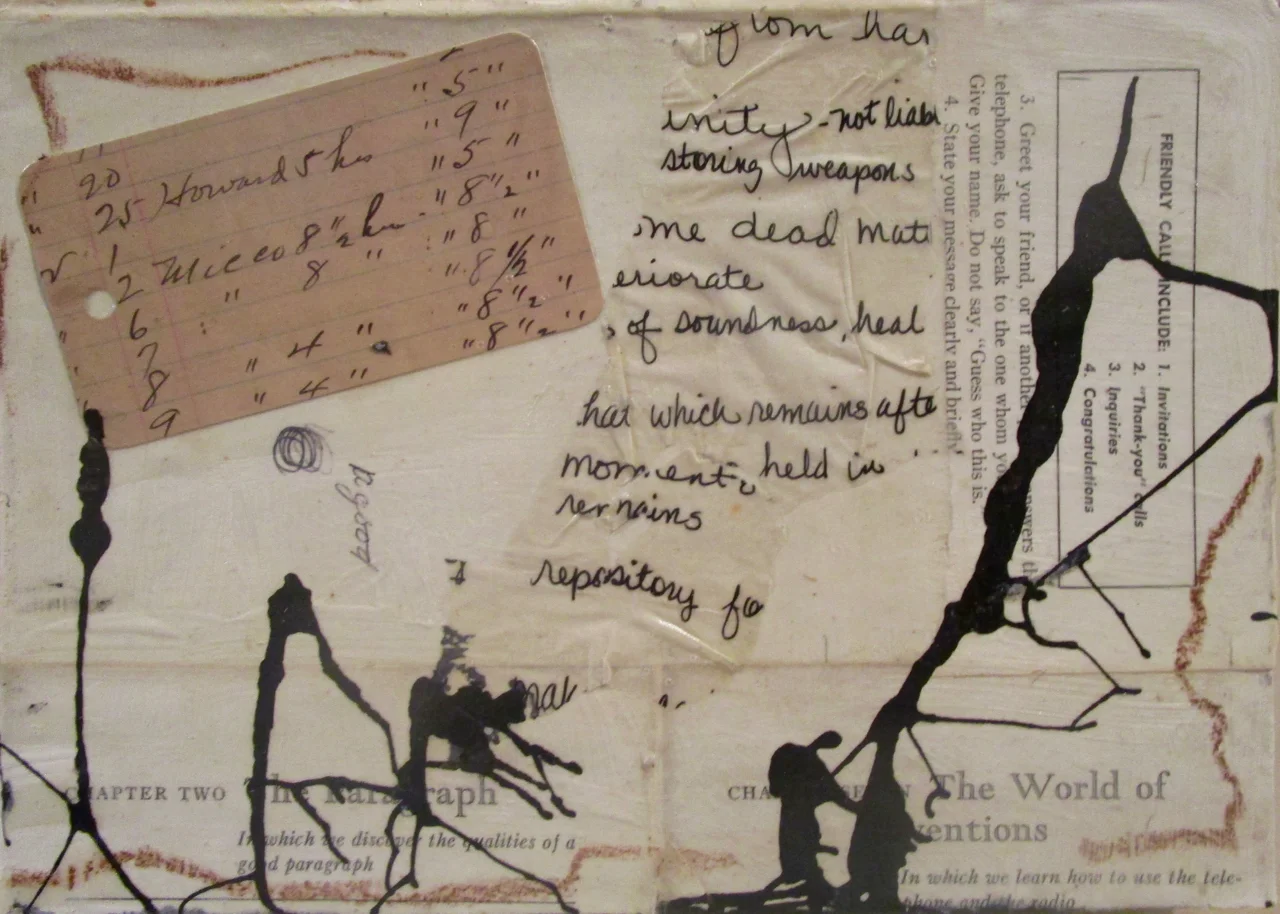 " 5 "
" 9 "
20 " 5 "
25 Howard 5 hrs " 8 " 2 "
1 " 8 "
2 Micco 8 " 2 hrs " 8 1/2 "
6 " 8 " " 8 " 2 "
7 " 8 " 2 "
8 " 4 "
9 " 4 "
from har
inity - not liabl
storing weapons
me dead mat
eriorate
, of soundness, heal
hat which remains afte
moment, held in
remains
repository fo
FRIENDLY CALL INCLUDE: 1. Invitations
2. "Thank-you" calls
3. Inquiries
4. Congratulations
3. Greet your friend, or if another answers th
telephone, ask to speak to the one whom yo
Give your name. Do not say, "Guess who this is.
4. State your message clearly and briefly
CHAPTER TWO The Paragraph
In which we discover the qualities of a
good paragraph
CHAPTER SEVEN The World of
ventions
In which we learn how to use the tele-
phone and the radio